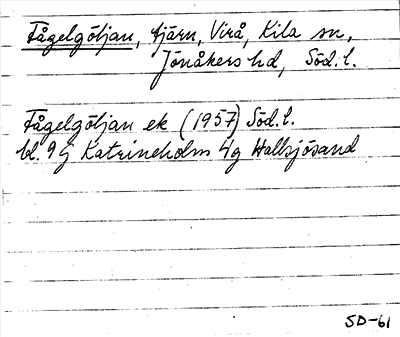 Fågelgöljan, tjärn, Virå, Kila sn,
Jönåkers hd, Söd.l.
Fågelgöljan ek (1957) Söd.l.
bl. 9G Katrineholm 4g Hallsjösand
SD-61